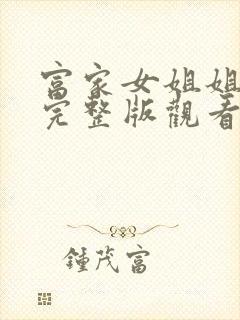 富家女姐姐
完整版觀看
鍾茂富